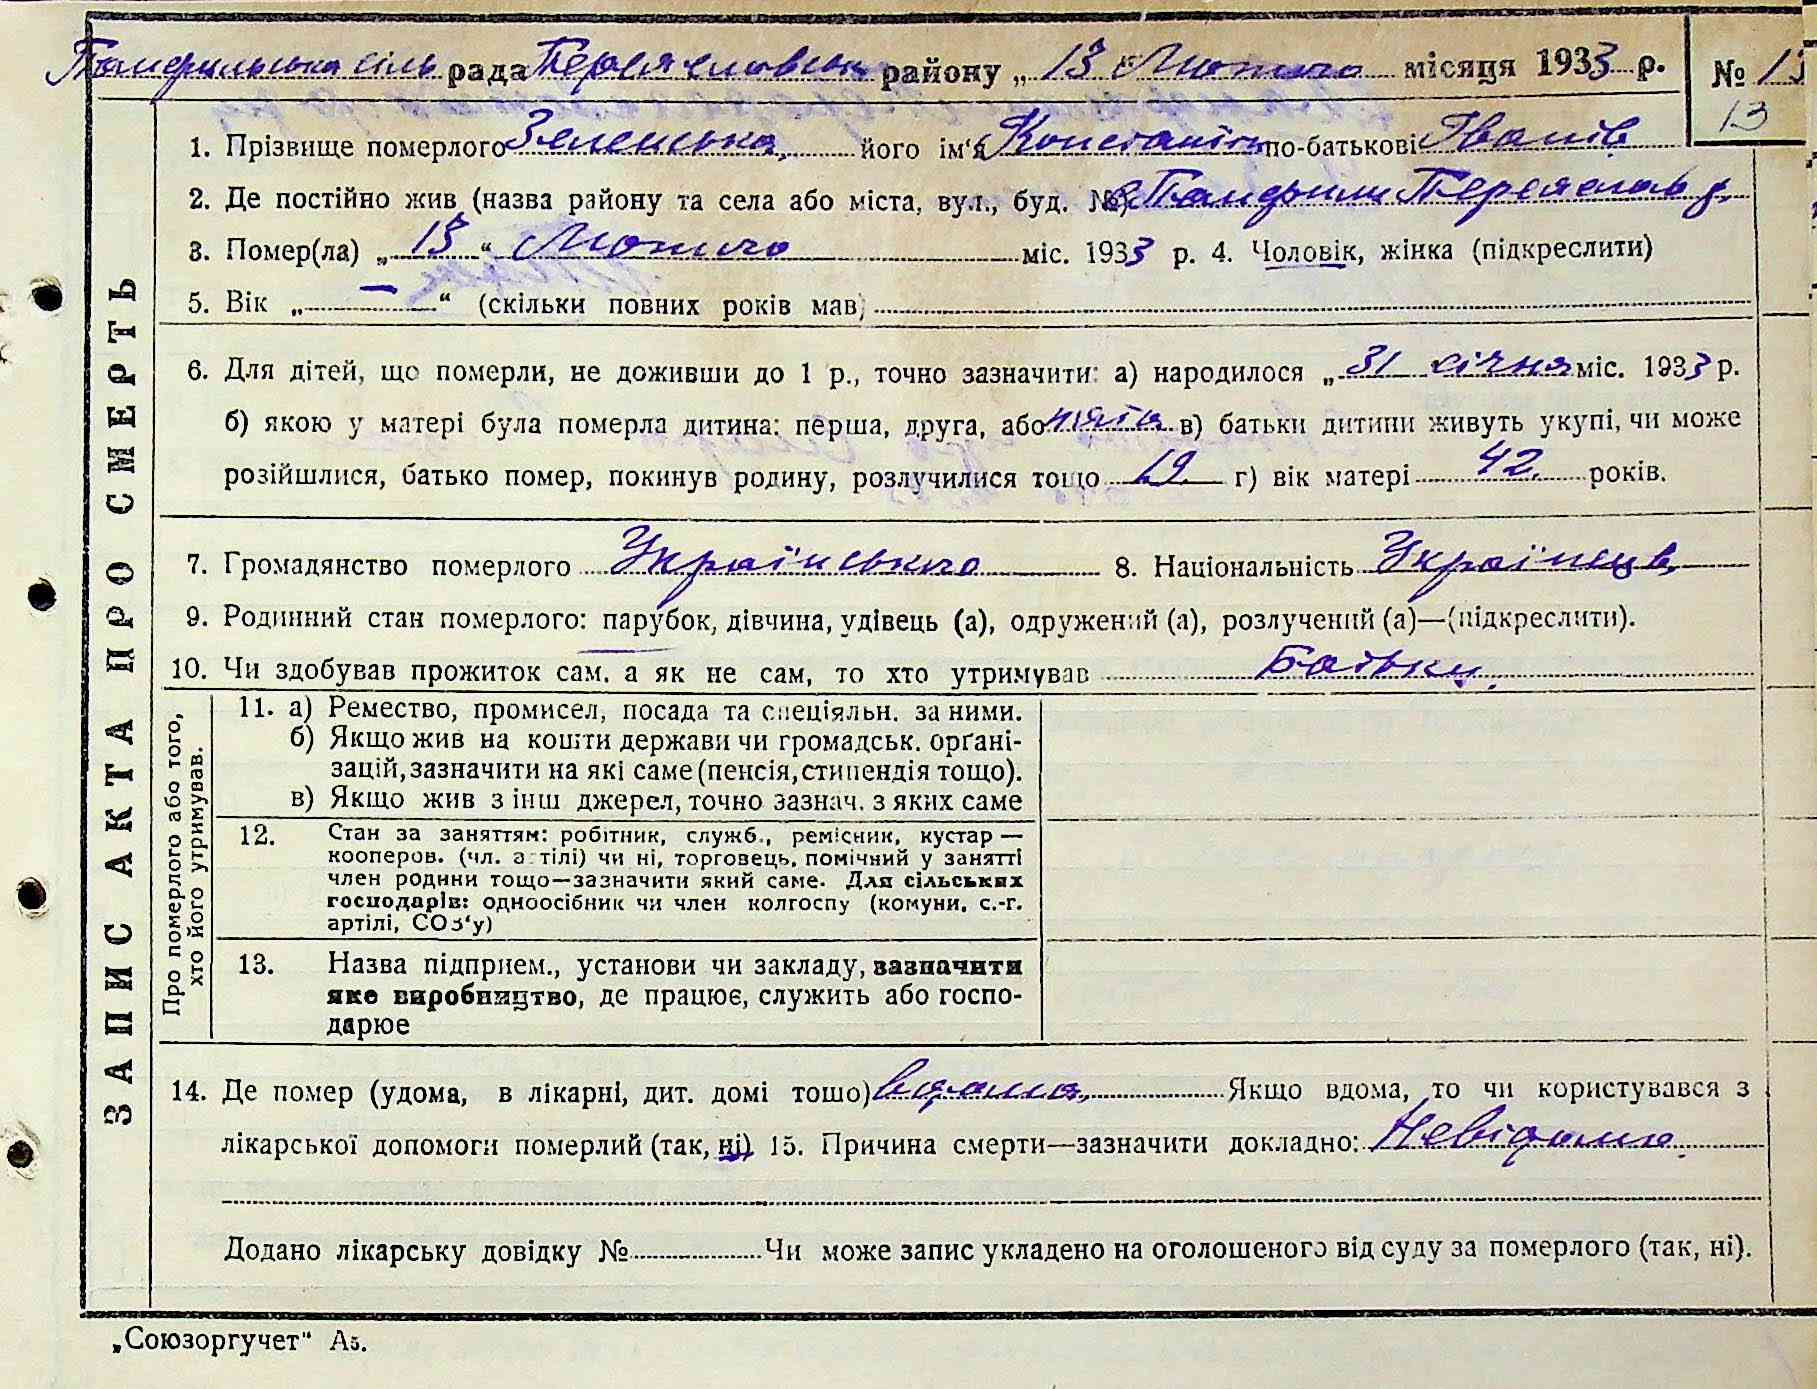 Памфильська сіль рада Переяславськ району „ 13 " Лютого місяця 1933 р. № 13
13
1. Прізвище померлого Зеленська його ім'я Константін по-батькові Іванів
2. Де постійно жив (назва району та села або міста, вул., буд. №) с Памфили Переяслав р.
3. Помер(ла) „ 13 “ Лютого міс. 1933 р. 4. Чоловік, жінка (підкреслити)
5. Вік „ — “ (скільки повних років мав)
6. Для дітей, що померли, не доживши до 1 р., точно зазначити: а) народилося „ 31 січня міс. 1933 р.
б) якою у матері була померла дитина: перша, друга, або пята в) батьки дитини живуть укупі, чи може
розійшлися, батько помер, покинув родину, розлучилися тощо 19. г) вік матері 42. років.
7. Громадянство померлого Українського 8. Національність Українець
9. Родинний стан померлого: парубок, дівчина, удівець (а), одружений (а), розлучений (а)—(підкреслити).
10. Чи здобував прожиток сам. а як не сам, то хто утримував Батьки.
Про померлого або того,
хто його утримував.
11. а) Ремество, промисел, посада та спеціяльн. за ними.
б) Якщо жив на кошти держави чи громадськ. орґані-
зацій, зазначити на які саме (пенсія, стипендія тощо).
в) Якщо жив з інш джерел, точно зазнач. з яких саме
12. Стан за заняттям: робітник, служб., ремісник, кустар —
кооперов. (чл. артілі) чи ні, торговець, помічний у занятті
член родини тощо—зазначити який саме. Для сільських
господарів: одноосібник чи член колгоспу (комуни, с.-г.
артілі, СОЗ‘у)
13. Назва підприєм., установи чи закладу, зазначити
яке виробництво, де працює, служить або госпо-
дарює
14. Де помер (удома, в лікарні, дит. домі тощо) вдома, Якщо вдома, то чи користувався з
лікарської допомоги померлий (так, ні) 15. Причина смерти—зазначити докладно: Невідомо.
Додано лікарську довідку № Чи може запис укладено на оголошеного від суду за померлого (так, ні).
ЗАПИС АКТА ПРО СМЕРТЬ
„Союзоргучет" А5.